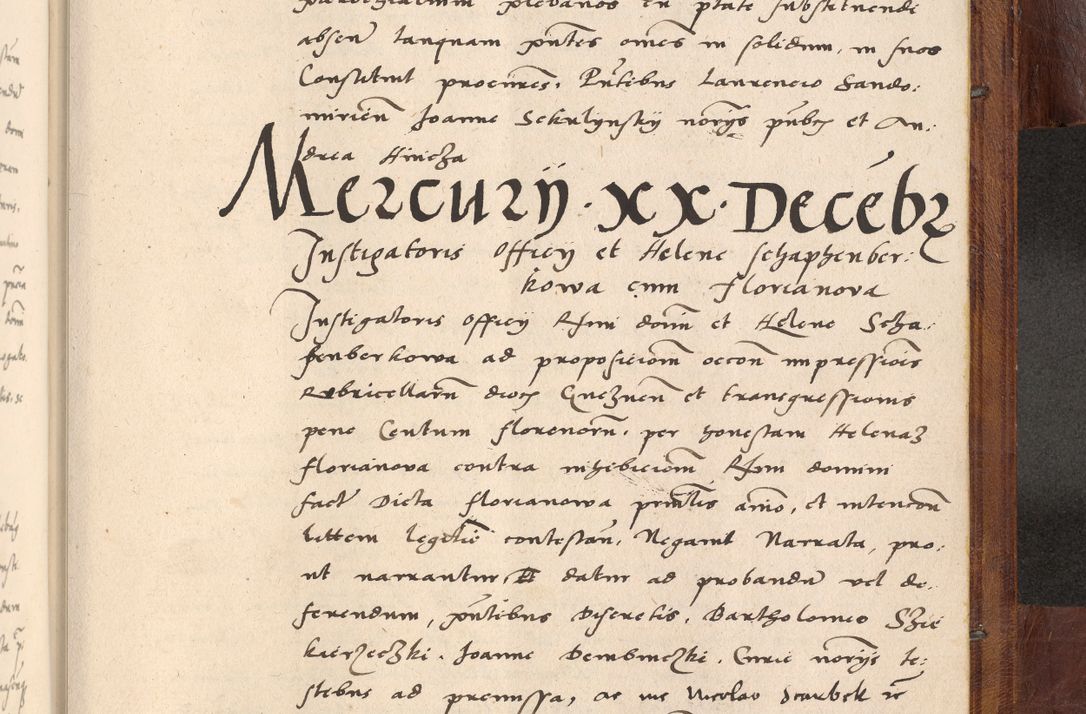 parochialium plebanos en ptate substituendi
absen tanquam pntes omes in solidum, in suos
Constituit procures. Pntibus Laurencio Sando:
mirien Joanne Sekulynskij norijs publ et An:
drea Hincza
Mercurij · XX · Decebr
Instigatoris officij et Helene Schaphenber:
kowa cum Florianova
Instigatoris officij Rmi domi et Helene Scha:
fenberkowa ad proposiciom occon impressiois
rubricellarn dioc Gneznen et transgressionis
pene Centum florenorn, per honestam Helenaz
Florianova contra inhibiciom Rmi domini
fact Dicta Florianowa animo, et intencon
littem legitie contestan, Negavit Narrata, pro:
ut narrantur, Et datur ad probandu vel de:
ferendum, pntibus Discretis, Bartholomeo Szie
kierzeczki. Joanne Dembinczki. Curie norijs te:
stibus ad premissa, ac me Nicolao Scarbek rc